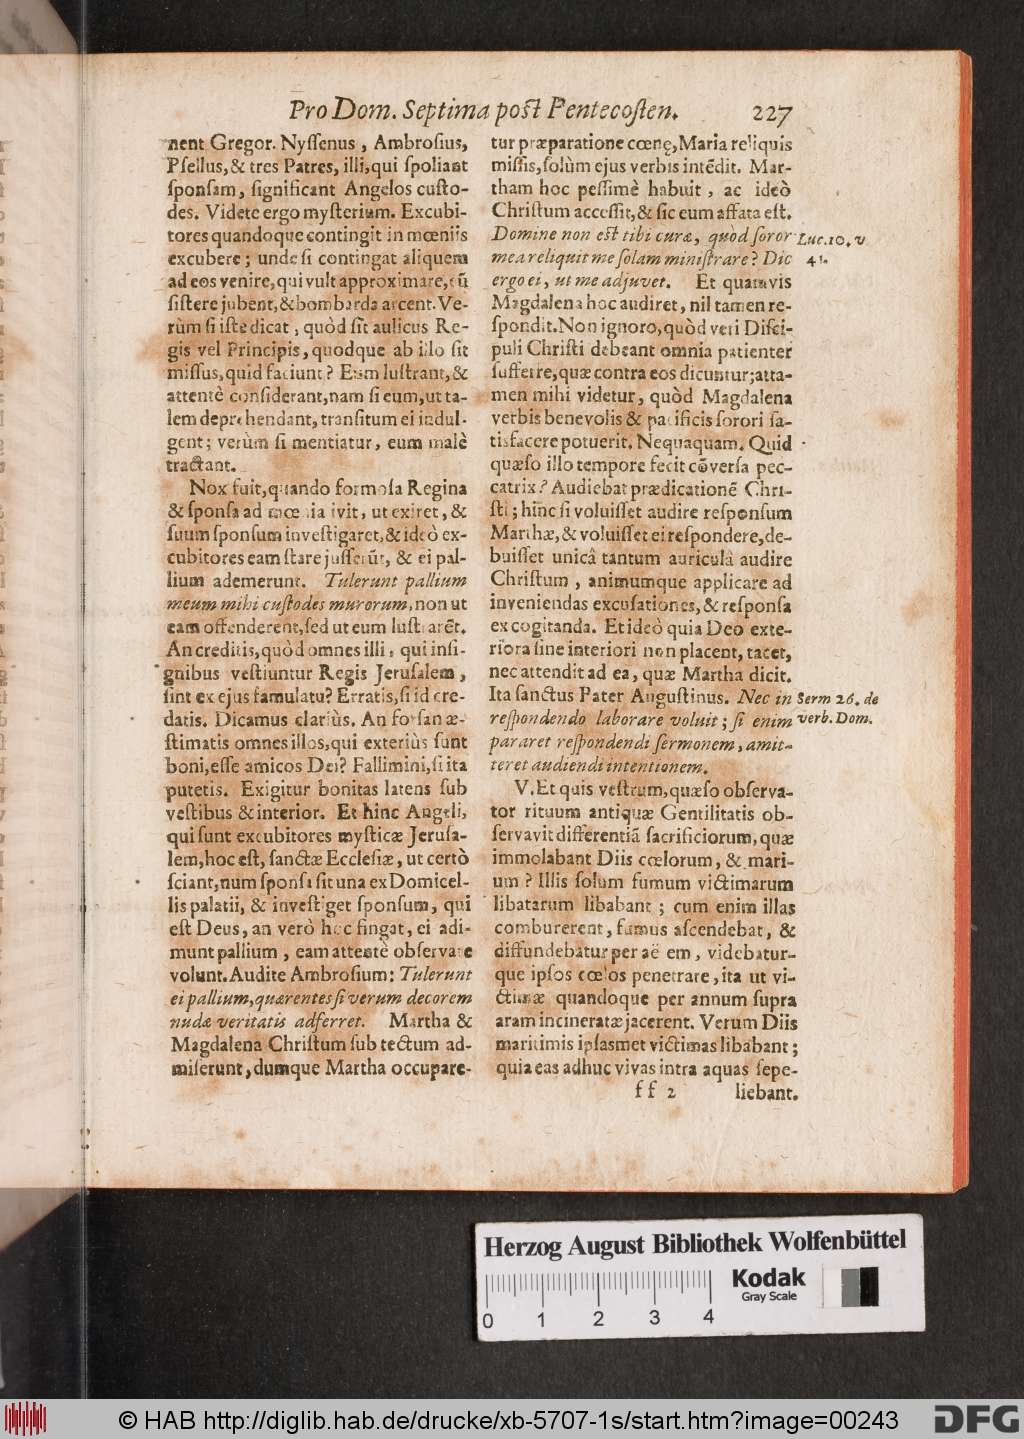 Pro Dom. Septima poſt Pentecoſten. 227
nent Gregor. Nyſſenus, Ambroſius,
Pſellus, & tres Patres, illi, qui ſpoliant
ſponſam, ſignificant Angelos cuſto-
des. Videte ergo myſterium. Excubi-
tores quandoque contingit in mœniis
excubere; unde ſi contingat aliquem
ad eos venire, qui vult approximare, eū
ſiſtere jubent, & bombarda arcent. Ve-
rùm ſi iſte dicat, quòd ſit aulicus Re-
gis vel Principis, quodque ab illo ſit
miſſus, quid faciunt? Eum luſtrant, &
attentè conſiderant, nam ſi eum, ut ta-
lem deprehendant, tranſitum ei indul-
gent; verùm ſi mentiatur, eum malè
tractant.
Nox fuit, quando formoſa Regina
& ſponſa ad mœnia ivit, ut exiret, &
ſuum ſponſum inveſtigaret, & ideò ex-
cubitores eam ſtare juſſerūt, & ei pal-
lium ademerunt. Tulerunt pallium
meum mihi cuſtodes murorum, non ut
eam offenderent, ſed ut eum luſtrarēt.
An creditis, quòd omnes illi, qui inſi-
gnibus veſtiuntur Regis Jeruſalem,
ſint ex ejus famulatu? Erratis, ſi id cre-
datis. Dicamus clariùs. An forſan æ-
ſtimatis omnes illos, qui exteriùs ſunt
boni, eſſe amicos Dei? Fallimini, ſi ita
putetis. Exigitur bonitas latens ſub
veſtibus & interior. Et hinc Angeli,
qui ſunt excubitores myſticæ Jeruſa-
lem, hoc eſt, ſanctæ Eccleſiæ, ut certò
ſciant, num ſponſa ſit una ex Domicel-
lis palatii, & inveſtiget ſponſum, qui
eſt Deus, an verò hoc fingat, ei adi-
munt pallium, eam attentè obſervare
volunt. Audite Ambroſium: Tulerunt
ei pallium, quærentes ſi verum decorem
nudæ veritatis adferret. Martha &
Magdalena Chriſtum ſub tectum ad-
miſerunt, dumque Martha occupare-
tur præparatione cœnę, Maria reliquis
miſſis, ſolùm ejus verbis intēdit. Mar-
tham hoc peſſimè habuit, ac ideò
Chriſtum acceſſit, & ſic eum affata eſt.
Domine non eſt tibi curæ, quòd ſoror
mea reliquit me ſolam miniſtrare? Dic
ergo ei, ut me adjuvet. Et quamvis
Magdalena hoc audiret, nil tamen re-
ſpondit. Non ignoro, quòd veri Diſci-
puli Chriſti debeant omnia patienter
ſufferre, quæ contra eos dicuntur; atta-
men mihi videtur, quòd Magdalena
verbis benevolis & pacificis ſorori ſa-
tisfacere potuerit. Nequaquam. Quid
quæſo illo tempore fecit cōverſa pec-
catrix? Audiebat prædicationē Chri-
ſti; hinc ſi voluiſſet audire reſponſum
Marthæ, & voluiſſet ei reſpondere, de-
buiſſet unicâ tantum auriculâ audire
Chriſtum, animumque applicare ad
inveniendas excuſationes, & reſponſa
excogitanda. Et ideò quia Deo exte-
riora ſine interiori non placent, tacet,
nec attendit ad ea, quæ Martha dicit.
Ita ſanctus Pater Auguſtinus. Nec in
reſpondendo laborare voluit; ſi enim
pararet reſpondendi ſermonem, amit-
teret audiendi intentionem.
V. Et quis veſtrum, quæſo obſerva-
tor rituum antiquæ Gentilitatis ob-
ſervavit differentiā ſacrificiorum, quæ
immolabant Diis cœlorum, & mari-
um? Illis ſolum fumum victimarum
libatarum libabant; cum enim illas
comburerent, fumus aſcendebat, &
diffundebatur per aë em, videbatur-
que ipſos cœlos penetrare, ita ut vi-
ctimæ quandoque per annum ſupra
aram incineratæ jacerent. Verum Diis
maritimis ipſasmet victimas libabant;
quia eas adhuc vivas intra aquas ſepe-
ff 2 liebant.
Luc. 10. v
41.
Serm 26. de
verb. Dom.
Herzog August Bibliothek Wolfenbüttel
Kodak
Gray Scale
0 1 2 3 4
© HAB http://diglib.hab.de/drucke/xb-5707-1s/start.htm?image=00243
DFG